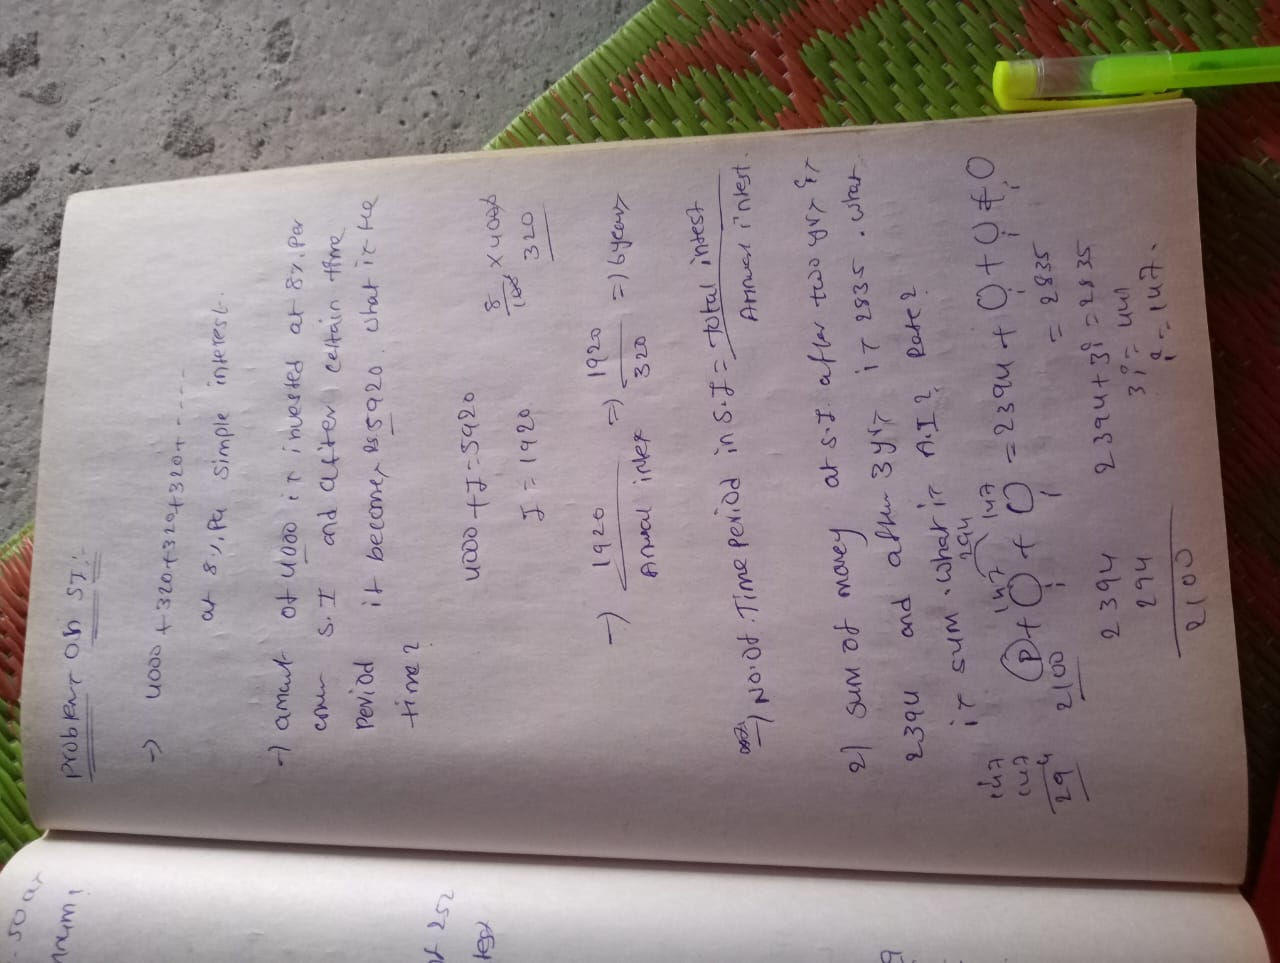 problems on SI:-
-) 4000 + 320+320+320+320+ - - - -
at 8%.Pa simple interest.
-) amount of 4000 is invested at 8%.Per
S.I and after certain time
Period it becomes Rs5920. what is the
time?
4000 + I = 5920
I = 1920
8/100 x 4000
320
-) 1920/Annual =) 1920/320 =) 6 years
=) No:of.Time period in S.I = total intest/Annual intrest.
2) sum of money at S.I. after two yrs is
2394 and after 3 yrs is 2835 . what
is sum .what is A.I? Rate?
294
147 147 147
147 P + i + i = 2394 + i + i + i
294 2100 = 2835
2394 2394 + 3i = 2835
294 3i = 441
2100 i = 147.
50 at
nnum?
of 252